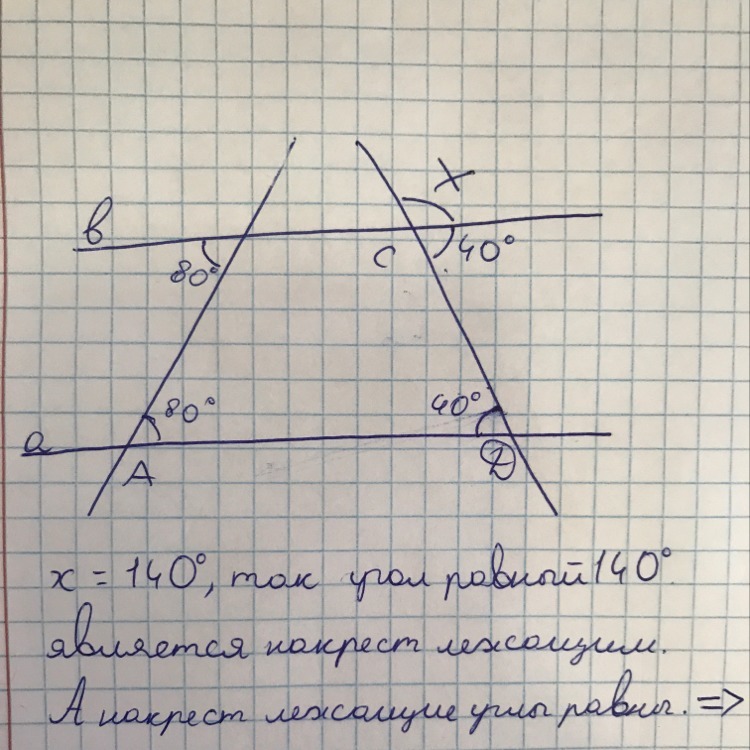 X
в
C
40°
80°
80°
40°
a
A
D
x = 140°, так угол равный 140°
является накрест лежащим.
А накрест лежащие углы равны. =>